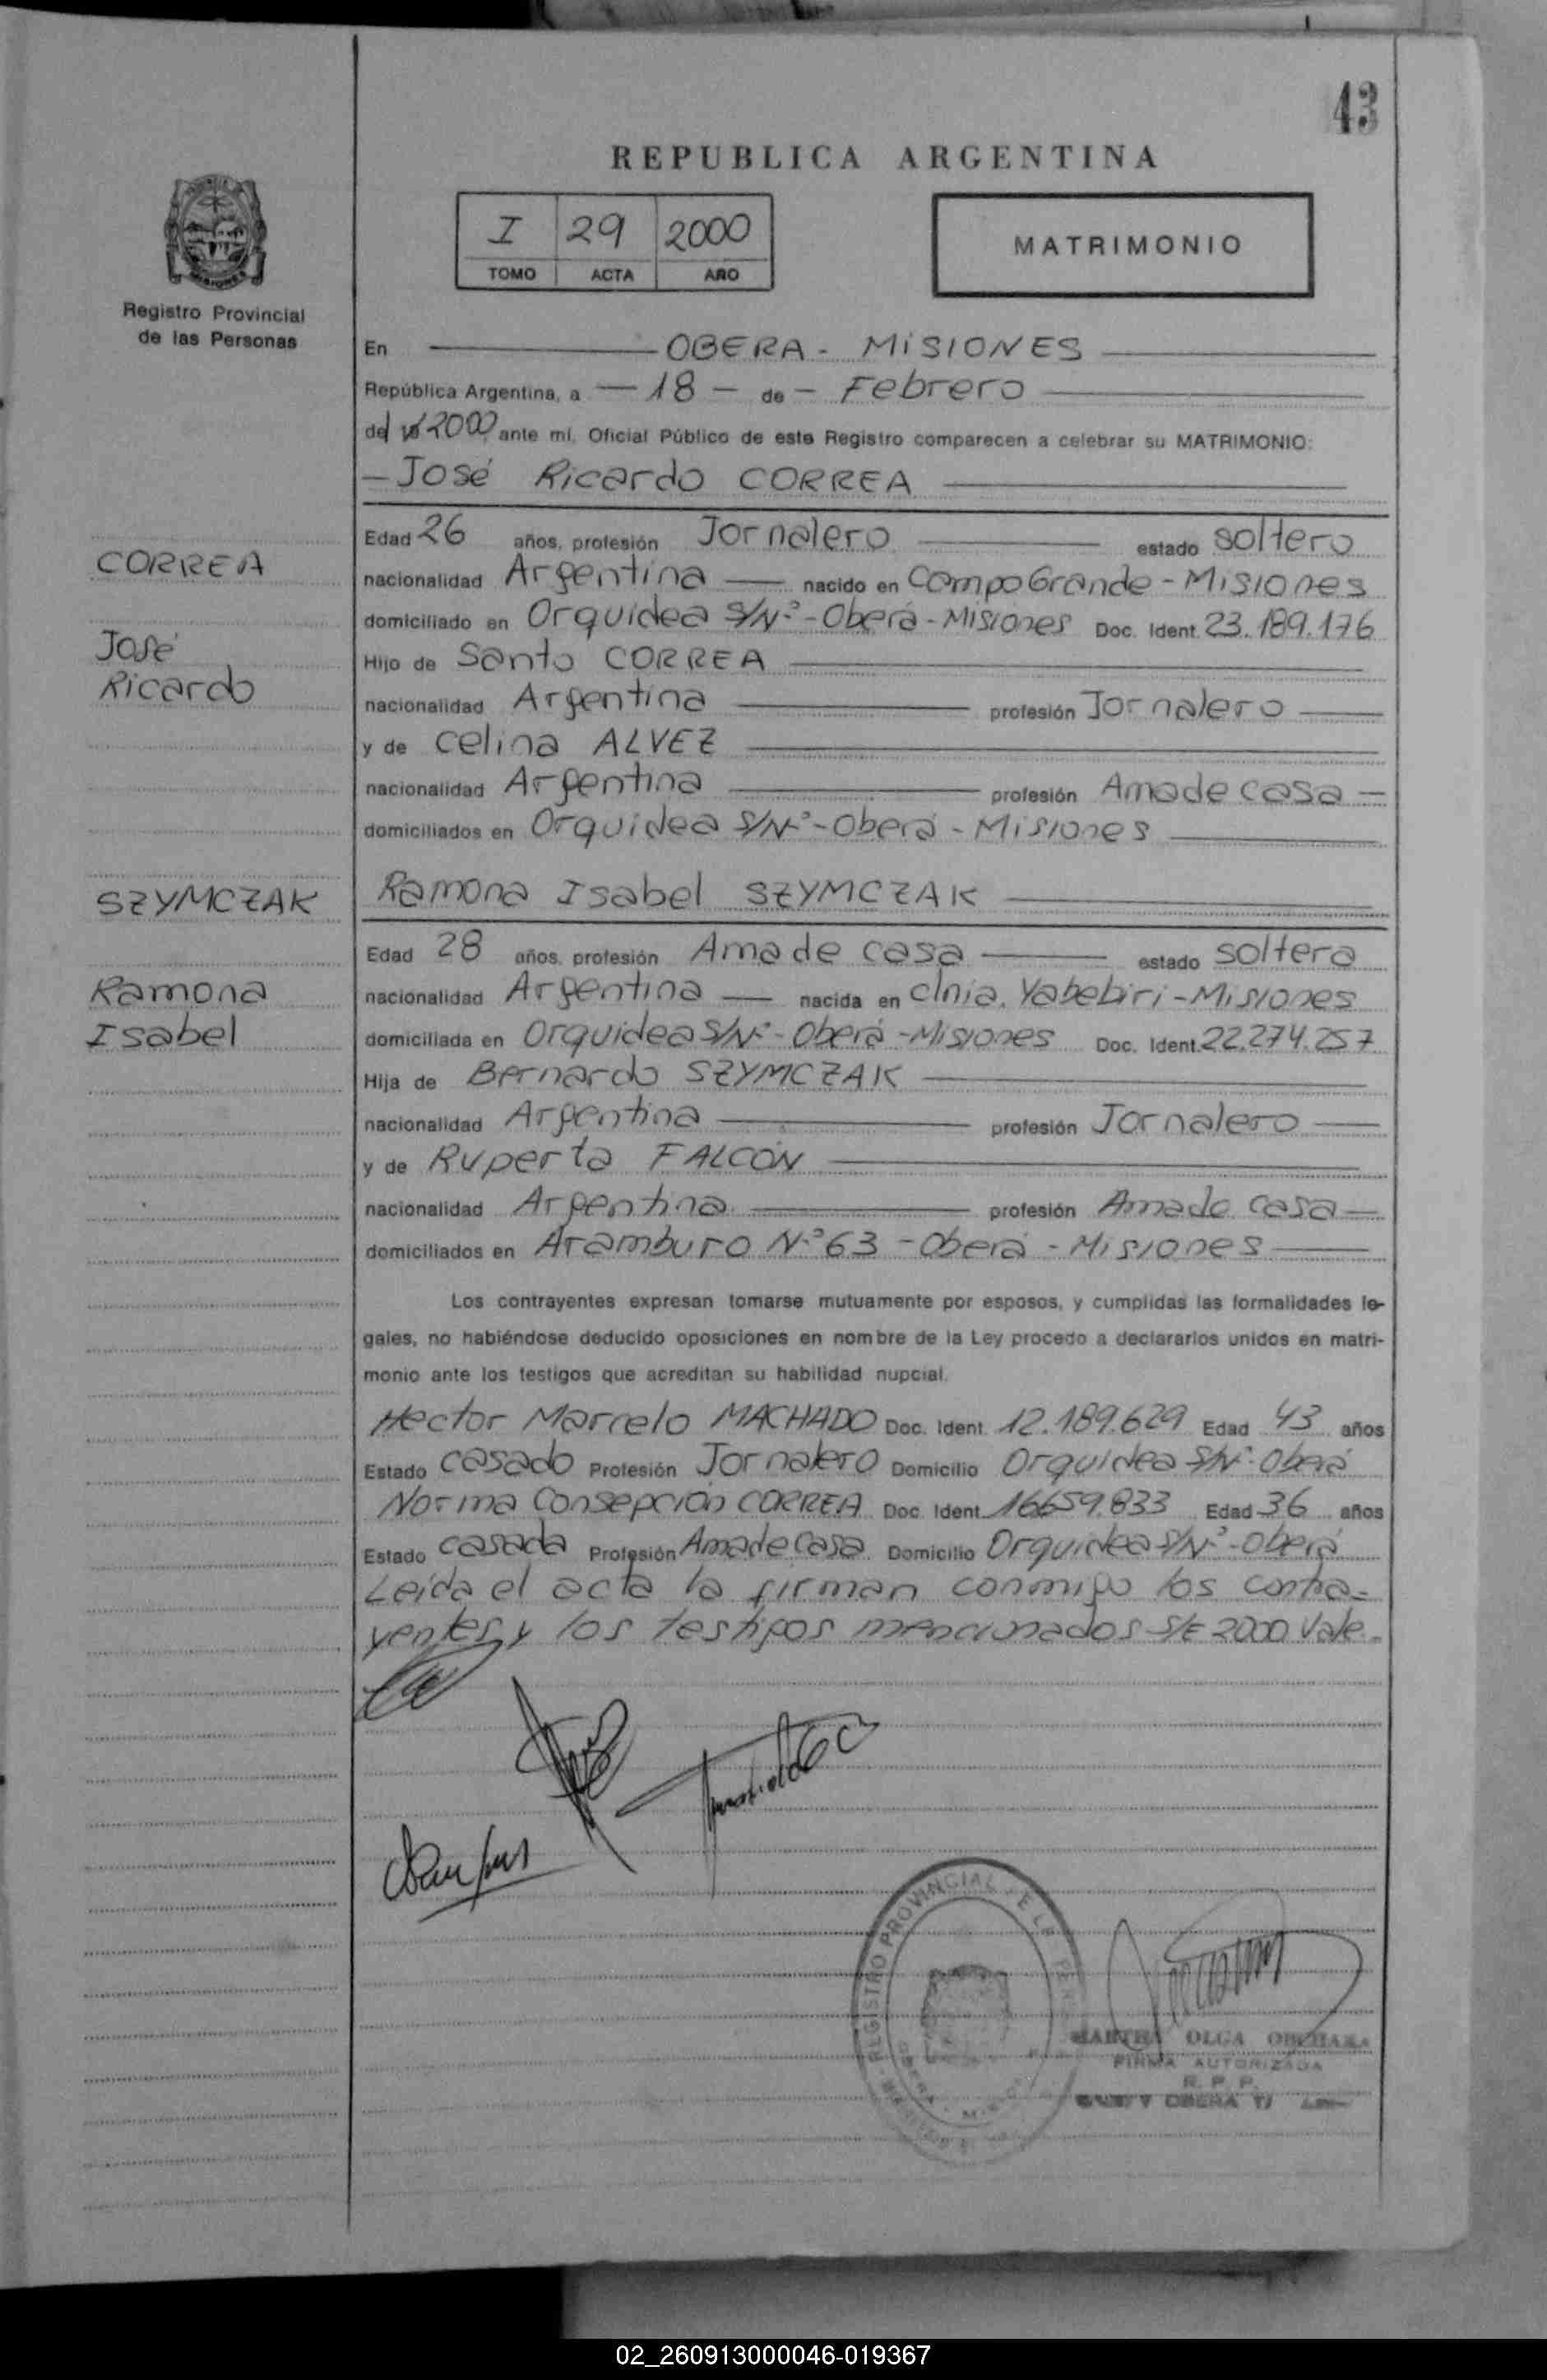 43
REPUBLICA ARGENTINA
I 29 2000
TOMO ACTA AÑO
MATRIMONIO
Registro Provincial
de las Personas
En OBERA - MISIONES
República Argentina, a - 18 - de - Febrero
del 2000 ante mí, Oficial Público de este Registro comparecen a celebrar su MATRIMONIO:
- José Ricardo CORREA
CORREA
José
Ricardo
Edad 26 años, profesión Jornalero estado soltero
nacionalidad Argentina nacido en Campo Grande - Misiones
domiciliado en Orquídea S/Nº - Oberá - Misiones Doc. Ident. 23.189.176
Hijo de Santo CORREA
nacionalidad Argentina profesión Jornalero
y de Celina ALVEZ
nacionalidad Argentina profesión Ama de casa -
domiciliados en Orquídea S/Nº - Oberá - Misiones
SZYMCZAK
Ramona
Isabel
Ramona Isabel SZYMCZAK
Edad 28 años, profesión Ama de casa estado soltera
nacionalidad Argentina nacida en Clnia. Yabebiri - Misiones
domiciliada en Orquídea S/Nº - Oberá - Misiones Doc. Ident. 22.274.257
Hija de Bernardo SZYMCZAK
nacionalidad Argentina profesión Jornalero
y de Ruperta FALCÓN
nacionalidad Argentina profesión Ama de casa -
domiciliados en Aramburo Nº 63 - Oberá - Misiones
Los contrayentes expresan tomarse mutuamente por esposos, y cumplidas las formalidades le-
gales, no habiéndose deducido oposiciones en nombre de la Ley procedo a declararlos unidos en matri-
monio ante los testigos que acreditan su habilidad nupcial.
Hector Marcelo MACHADO Doc. Ident. 12.189.629 Edad 43 años
Estado casado Profesión Jornalero Domicilio Orquídea S/Nº - Oberá
Norma Consepción CORREA Doc. Ident. 16659.833 Edad 36 años
Estado casada Profesión Ama de casa Domicilio Orquídea S/Nº - Oberá
Leída el acta la firman conmigo los contra-
yentes y los testigos mencionados S/E 2000 Vale.-
REGISTRO PROVINCIAL DE LAS
MARTHA OLGA
FIRMA AUTORIZADA
R. P. P.
OBERA
02_260913000046-019367